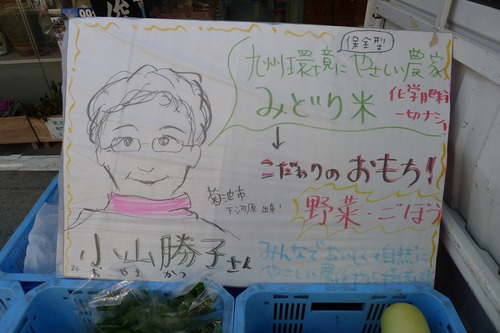 保全型
九州環境にやさしい農家
みどり米
化学肥料
一切ナシ
↓
こだわりのおもち!
菊池市
下河原 出身!
野菜・ごぼう
小山勝子さん
おやまかつこ
みんなでおいしくて自然に
やさしい農